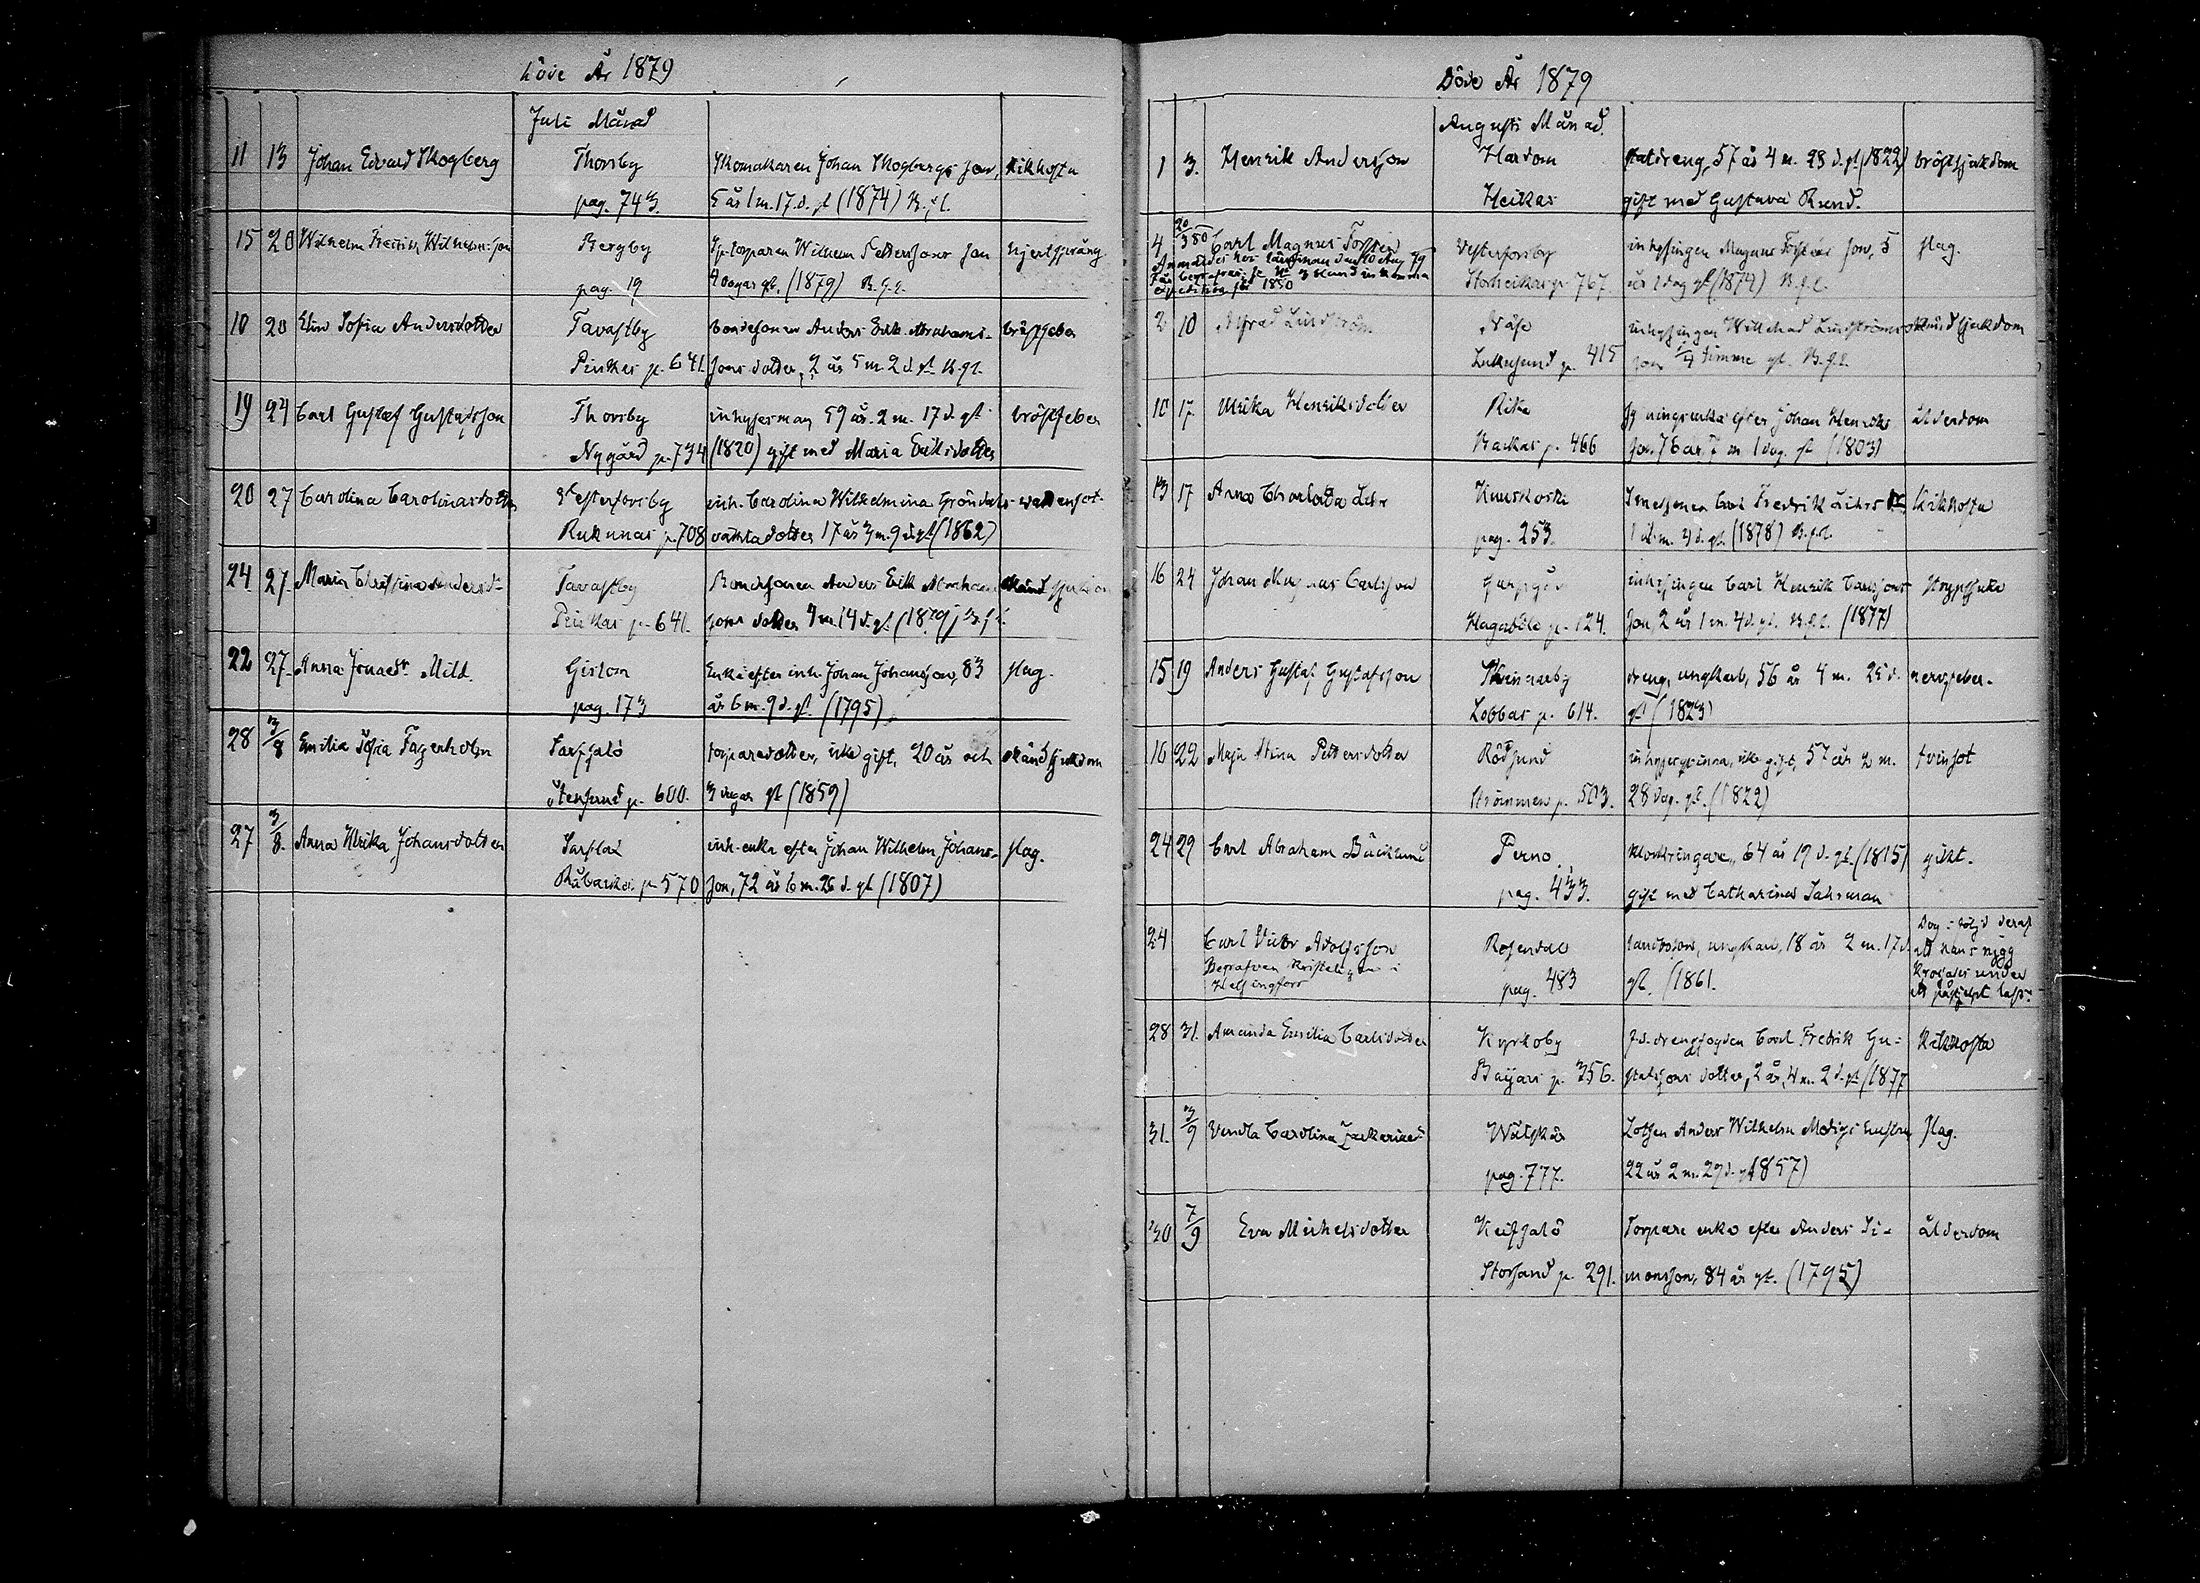 Döde År 1879
Juli Månad
11 13 Johan Edvard Skogberg Thorsby Skomakaren Johan Skogbergs son, kikhosta
pag. 743. 5 år 1 m. 17 d. gl (1874)
15 20 Wilhelm Fredrik Wilhelmsson Bergby Wilhelm Petterssons son hjertsprång
pag. 19 dagar gl. (1879)
10 20 Elin Sofia Andersdotter Tavastby bondesonen Anders Erik Abrahams- bröstfeber
Pinkar p. 641. sons dotter, 2 år 5 m. 2 d. gl.
19 24 Carl Gustaf Gustafsson Thorsby inhysesman 59 år. 2 m. 17 d. gl. bröstfeber
Nygård p. 734 (1820) gift med Maria Eriksdotter
20 27 Carolina Carolinasdotter Vesterforsby inh. Carolina Wilhelmina Gröndahls
p. 708 oäkta dotter 17 år 3 m. 9 d. gl (1862)
24. 27. Maria Christina Andersd. Tavastby Bondesonen Anders Erik Abrahams okänd sjukdom
p. 641. sons dotter 4 m. 14 d. gl (1879)
22 27. Anna Jonaedr. Mild. Gislom Enka efter inh. Johan Johansson, 83 slag.
pag. 173 år 6 m. 9 d. gl. (1795)
28 3/8 Emilia Sofia Fagerholm Sarfsalö torparedotter, icke gift, 20 år och okänd sjukdom
Stensund p. 600. 3 dagar gl (1859)
27 3/8. Anna Ulrika Johansdotter Sarfsalö inh. enka efter Johan Wilhelm Johans- slag.
Råbacka p. 570 son, 72 år 6 m. 26 d. gl (1807)
Döde År 1879
Augusti Månad.
1 3. Henrik Andersson Hardom statdreng, 57 år 4 m. 23 d. gl. (1822) bröstsjukdom
Heikas gift med Gustava Rund.
4 20/3 80 Carl Magnus Vesterforsby inhysingen Magnus son, 5 slag.
Anmäldes hos
p. 767. år 1 dag gl (1874)
expedition för 1880
2 10 Alfred Lindström Näse inhysingen Lindströms okänd sjukdom
p. 415 son 1/4 timme gl.
10 17. Ulrika Henriksdotter enka efter Johan Henriks- ålderdom
Backas p. 466 son, 76 år. 7 m 1 dag. gl (1803)
13 17 Anna Charlotta Kuuskoski Smedsonen Carl Fredrik kikhosta
pag. 253. (1878)
16 24 Johan Magnus Carlsson inhysingen Carl Henrik Carlssons strypsjuka
p. 124. son, 2 år 1 m. 4 d. gl. (1877)
15 19 Anders Gustaf Gustafsson Skinnarby dreng, ungkarl, 56 år 4 m. 25 d. nervfeber.
Lobbas p. 614. gl (1823)
16 22 Maja Stina Pettersdotter Rödsund inhysesqvinna, icke gift, 57 år 2 m. tvinsot
Strömmen p. 503. 28 dag. gl. (1822)
24 29 Carl Abraham Bäcklund Perno. klockringare, 64 år 19 d. gl. (1815) gikt.
pag. 433. gift med Catharina Sahrman
24 Carl Victor Adolfsson Rosendal landbosson, ungkarl, 18 år 2 m. 17 d. Dog i följd deraf
Begrafven kristeligen i att hans rygg
Helsingfors pag. 483 gl. (1861. krossades under
ett påstjelpt lass.
28 31. Amanda Emilia Carlsdotter Kyrkoby f.d. drengfogden Carl Fredrik Gu- kikhosta
p. 356. stafssons dotter, 2 år, 4 m. 2 d. gl (1877
31. 3/9 Vendla Carolina Zachariaedr Wåtskär Lotsen Anders Wilhelm Modigs hustru slag.
pag. 777. 22 år 2 m. 29 d. gl (1857)
30 7/9 Eva Michelsdotter Keitsalö Torpare enka efter Anders Si- ålderdom
Storsand p. 291. monsson, 84 år gl. (1795)